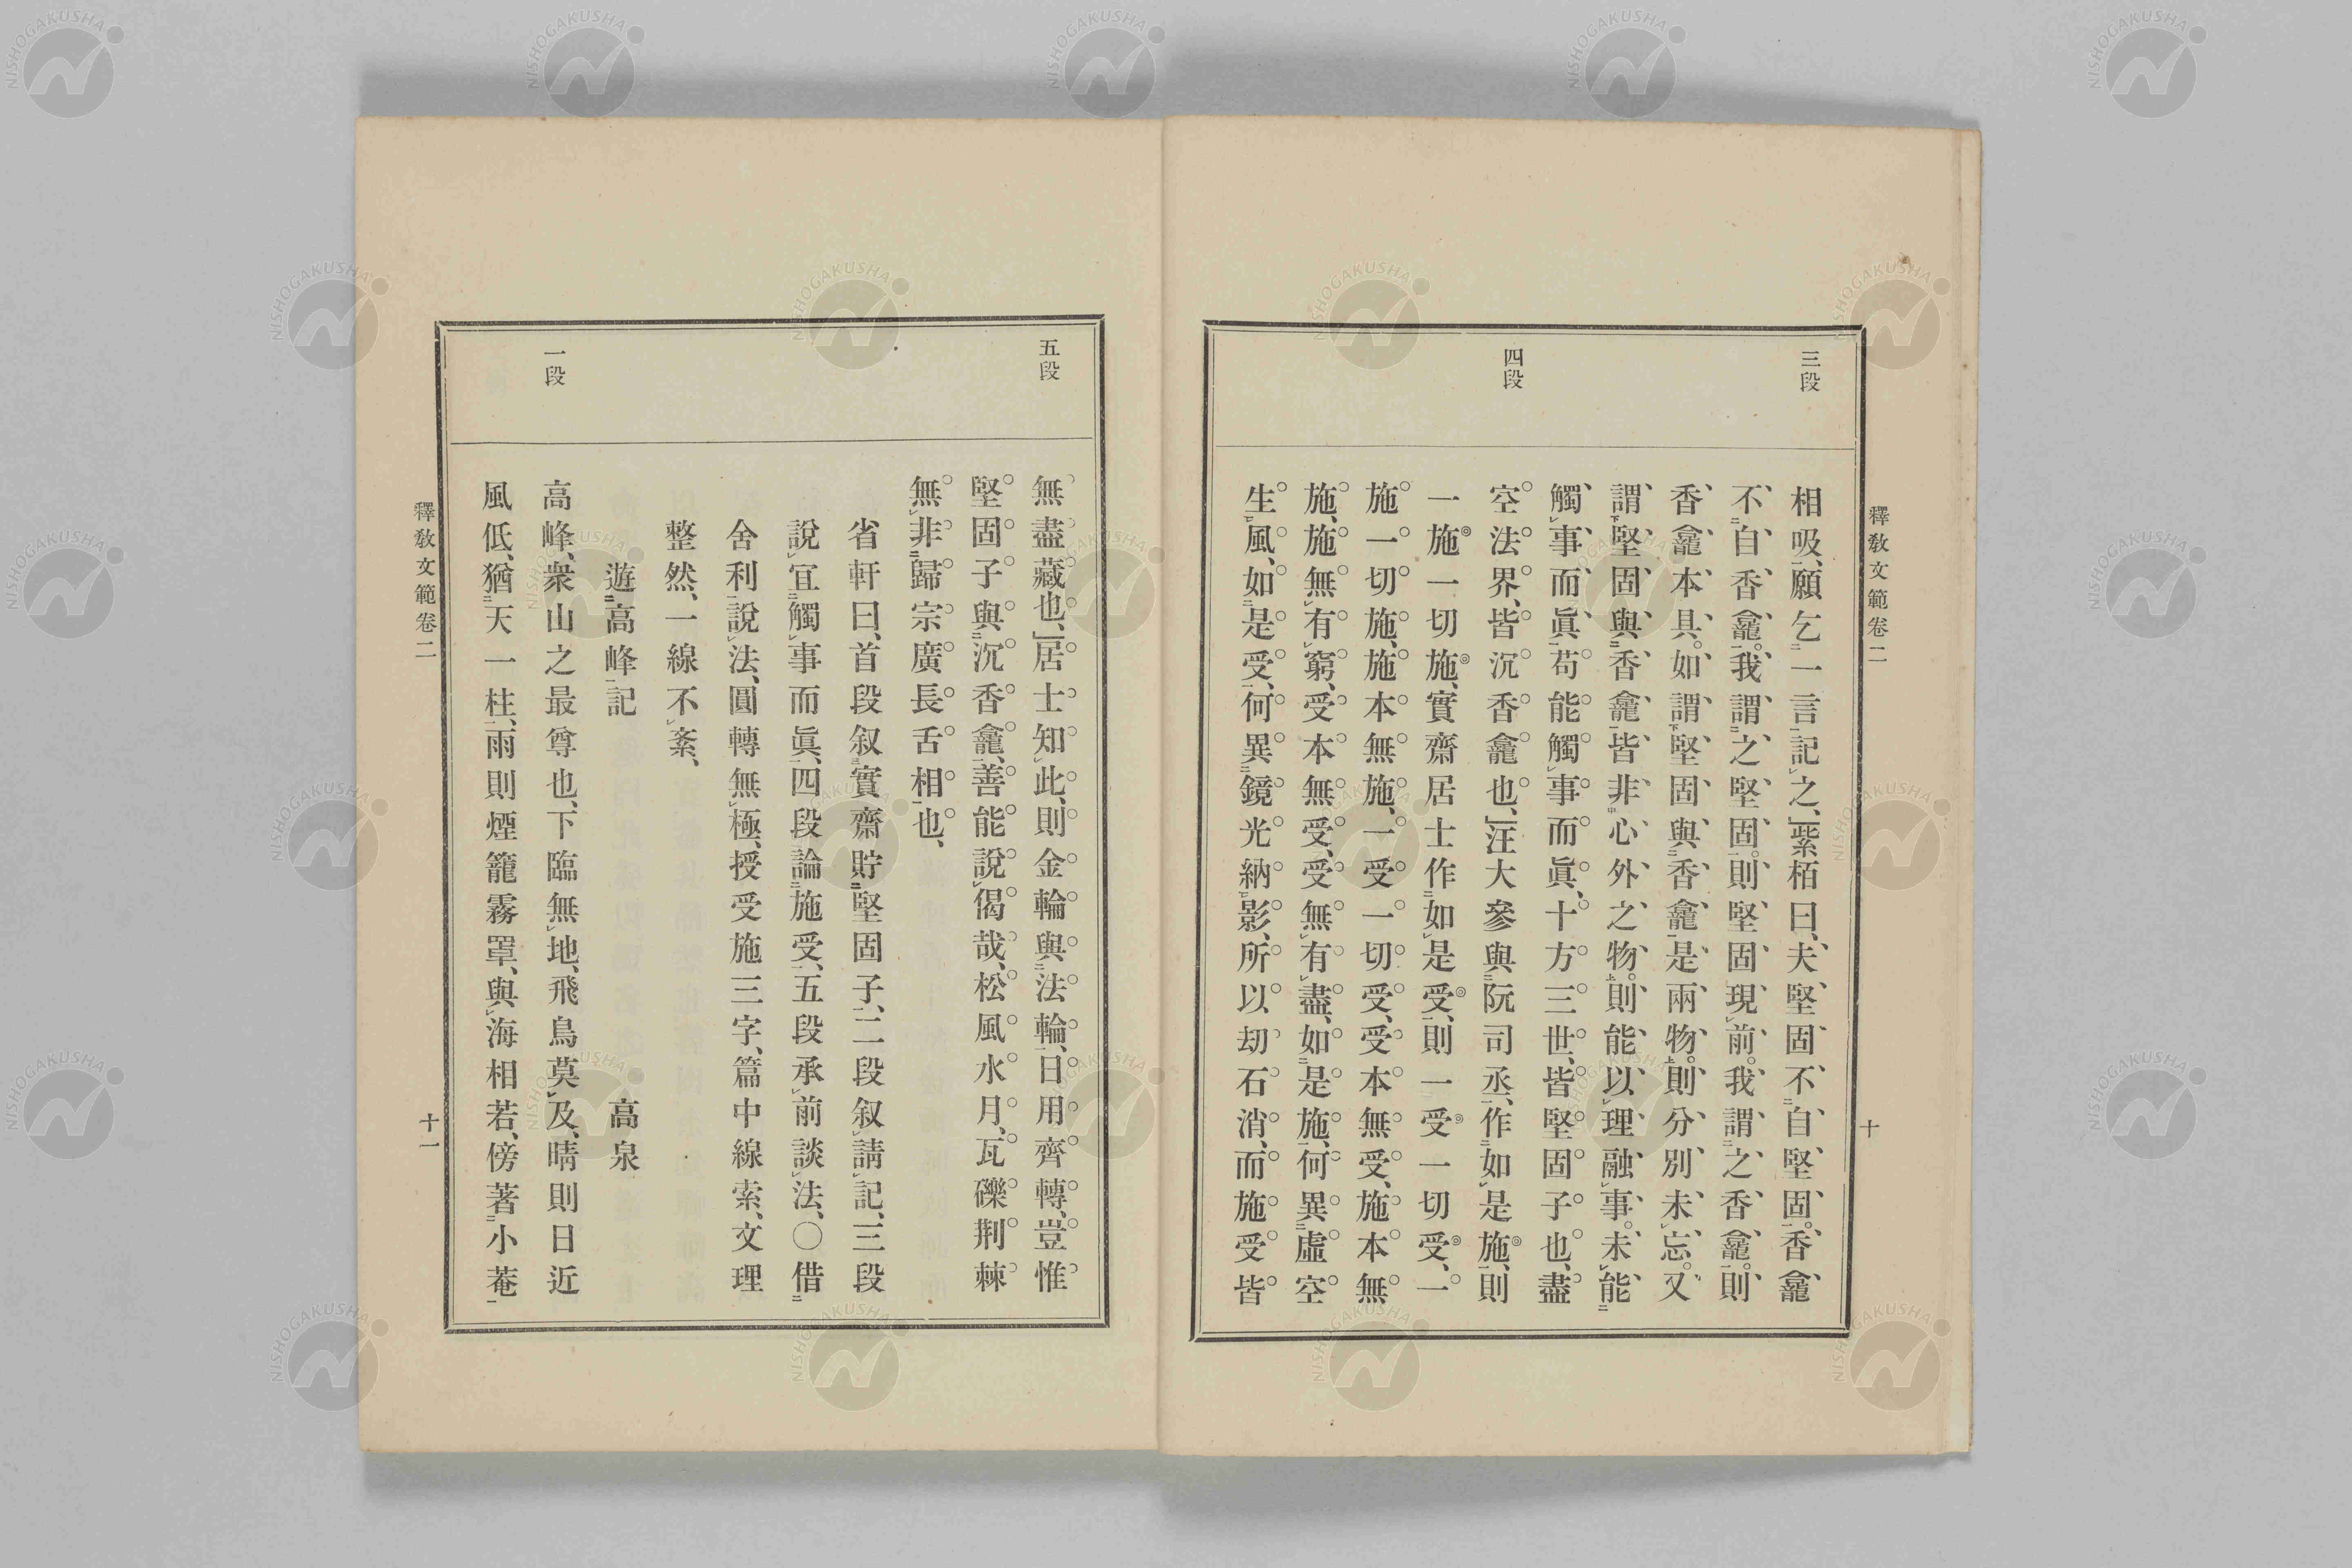 釋敎文範卷二
十
三段
四段
相吸、願乞一言記之、紫栢曰、夫堅固不自堅固。香龕
不自香龕。我謂之堅固。則堅固現前。我謂之香龕。則
香龕本具。如謂堅固與香龕是兩物。則分別未忘。又
謂堅固與香龕皆非心外之物。則能以理融事。未能
觸事而眞、苟能觸事而眞、十方三世、皆堅固子也、盡
空法界、皆沉香龕也、汪大參與阮司丞、作如是施、則
一施一切施、實齋居士作如是受、則一受一切受、一
施一切施、施本無施、一受一切受、受本無受、施本無
施、施無有窮、受本無受、受無有盡、如是施、何異虛空
生風、如是受、何異鏡光納影、所以劫石消、而施受皆
五段
一段
無盡藏也、居士知此、則金輪與法輪、日用齊轉、豈惟
堅固子與沉香龕、善能說偈哉、松風水月、瓦礫荆棘
無非歸宗廣長舌相也、
省軒曰、首段叙實齋貯堅固子、二段叙請記、三段
說宜觸事而眞、四段論施受、五段承前談法、〇借
舍利說法、圓轉無極、授受施三字、篇中線索、文理
整然、一線不紊、
遊高峰記 高泉
高峰、衆山之最尊也、下臨無地、飛鳥莫及、晴則日近
風低、猶天一柱、雨則煙籠霧罩、與海相若、傍著小菴
釋敎文範卷二
十一